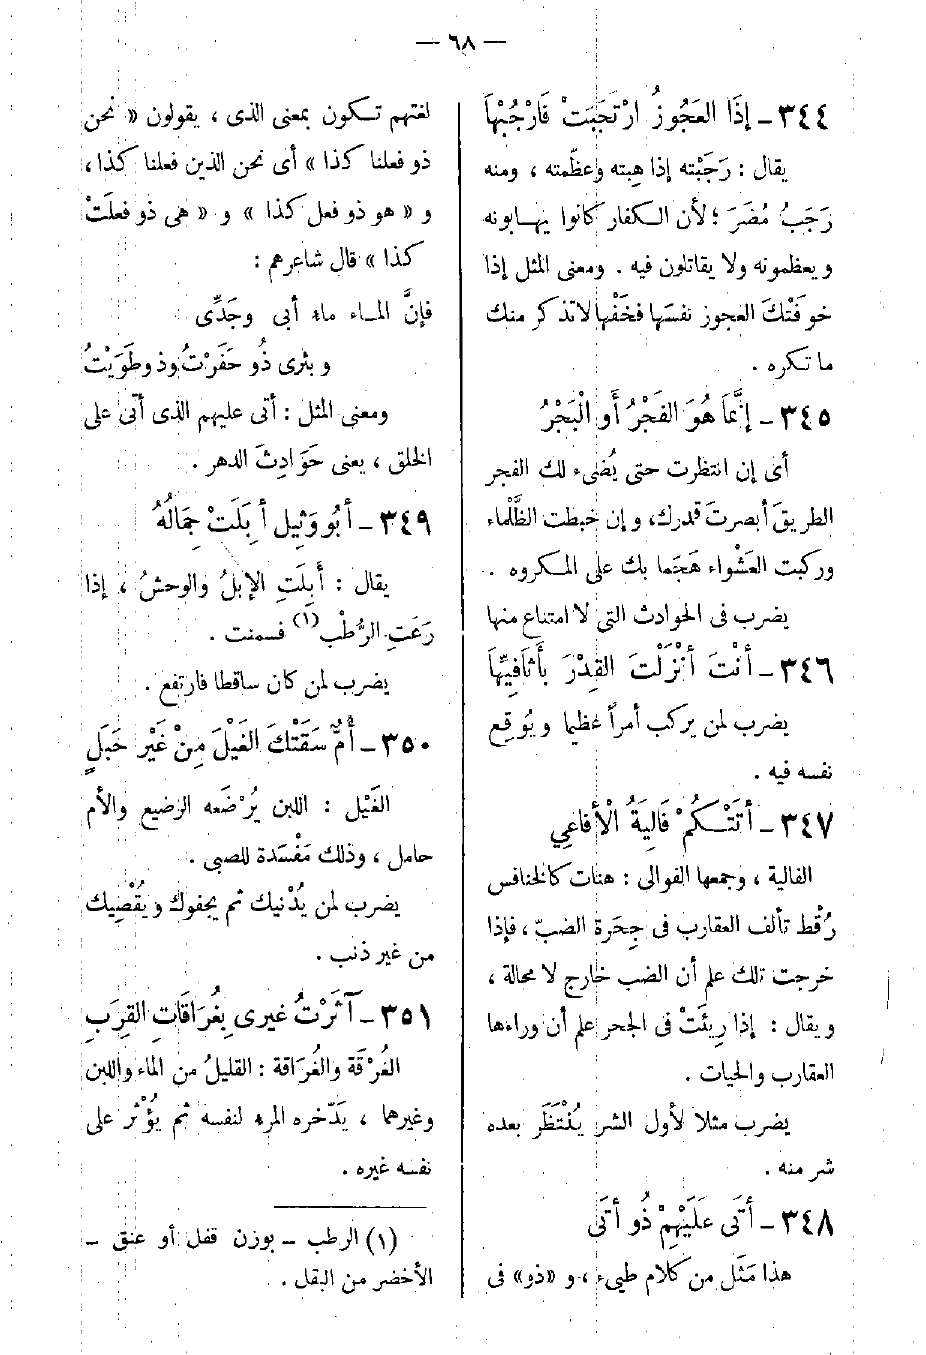 — ٦٨ —
٣٤٤ – إِذَا العَجُوزُ ارْتَجَبَتْ فَارْجُبْهَا
يقال : رَجَبْته إذا هِبته وعظّمته ، ومنه
رَجَبُ مُضَرَ ؛ لأن الكفار كانوا يهابونه
ويعظمونه ولا يقاتلون فيه . ومعنى المثل إذا
خوفَتْكَ العجوز نفسَها فخَفْها لا تذكر منك
ما تكره .
٣٤٥ – إنَّمَا هُوَ الفَجْرُ أَوِ الْبَجْرُ
أى إن انتظرت حتى يُضىء لك الفجر
الطريقَ أبصرتَ قدرك، وإن خبطت الظَّلْماء
وركبت العَشْواء هَجَما بك على المكروه .
يضرب فى الحوادث التى لا امتناع منها
٣٤٦ – أنْتَ أنْزَلْتَ القِدْرَ بأَثَافِيِّهَا
يضرب لمن يركب أمراً عظيما ويُوقِع
نفسه فيه .
٣٤٧ – أتَتْكُمْ فَالِيَةُ الْأفَاعِي
الفالية ، وجمعها الفوالى : هنات كالخنافس
رُقْط تألف العقارب فى جِحَرة الضبّ ، فإذا
خرجت تلك علم أن الضب خارج لا محالة ،
ويقال : إذا رِيئَتْ فى الجحر علم أن وراءها
العقارب والحيات .
يضرب مثلا لأول الشر يُنْتَظَر بعده
شر منه .
٣٤٨ – أتَى عَلَيْهِمْ ذُو أتَى
هذا مَثَل من كلام طيىء ، و «ذو» فى
لغتهم تكون بمعنى الذى ، يقولون « نحن
ذو فعلنا كذا » أى نحن الذين فعلنا كذا ،
و « هو ذو فعل كذا » و « هى ذو فعلَتْ
كذا » قال شاعرهم :
فإنَّ الماء ماء أبى وجَدِّى
وبئرى ذُو حَفَرْتُ وذو طَوَيْتُ
ومعنى المثل : أتى عليهم الذى أتى على
الخلق ، يعنى حَوَادِثَ الدهر .
٣٤٩ – أبُو وَثِيل أبَلَتْ جِمَالُهُ
يقال : أَبَلَتِ الإبلُ والوحشُ ، إذا
رَعَتِ الرُّطْب(١) فسمنت .
يضرب لمن كان ساقطا فارتفع .
٣٥٠ – أُمٌّ سَقَتْكَ الغَيْلَ مِنْ غَيْرِ حَبَلٍ
الغَيْل : اللبن يُرْضَعه الرضيع والأم
حامل ، وذلك مَفْسَدة للصبى .
يضرب لمن يُدْنيك ثم يجفوك ويُقْصِيك
من غير ذنب .
٣٥١ – آثَرْتُ غيرى بِغُرَاقَاتِ القِرَبِ
الغُرْقَة والغُرَاقة : القليلُ من الماء واللبن
وغيرهما ، يَدّخره المرء لنفسه ثم يُؤْثر على
نفسه غيره .
(١) الرطب – بوزن قفل أو عنق –
الأخضر من البقل .